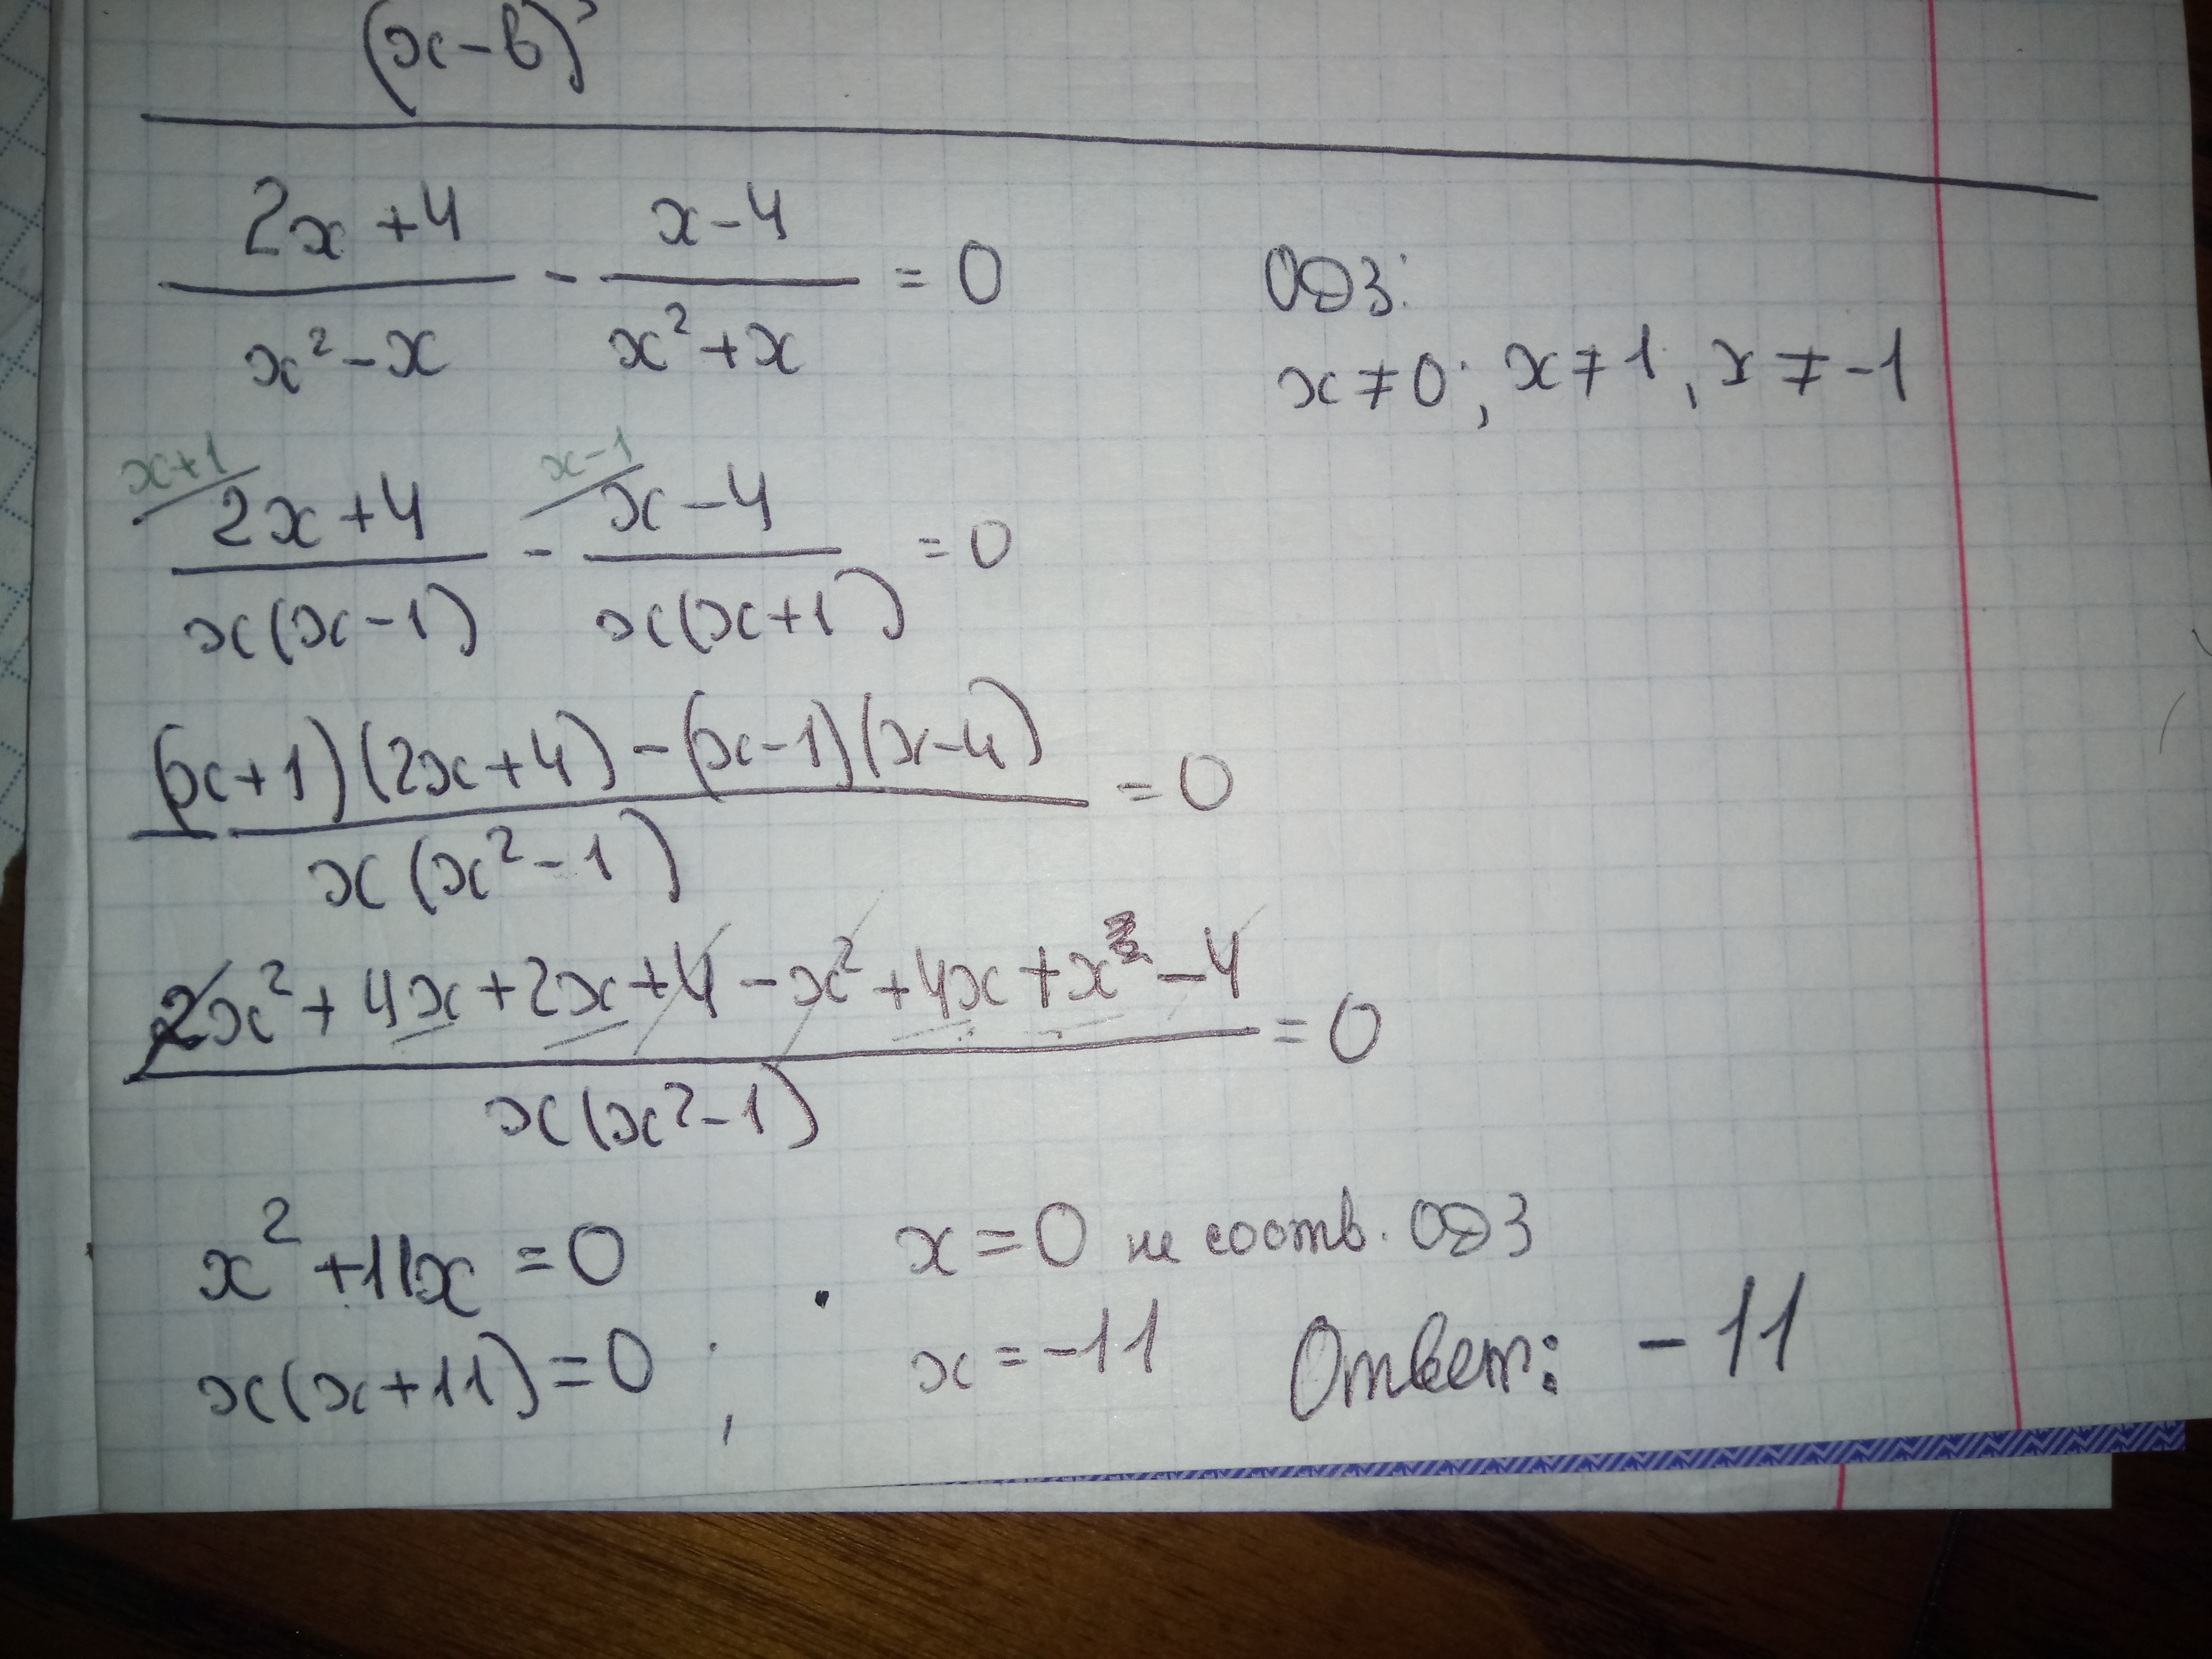 (x-в)³
(2x+4)/(x²-x) - (x-4)/(x²+x) = 0
ОДЗ:
x≠0; x≠1, x≠-1
x+1 x-1
(2x+4)/(x(x-1)) - (x-4)/(x(x+1)) = 0
((x+1)(2x+4)-(x-1)(x-4))/(x(x²-1)) = 0
(2x²+4x+2x+4-x²+4x+x-4)/(x(x²-1)) = 0
x²+11x=0
x=0 не соотв. ОДЗ
x(x+11)=0;
x=-11
Ответ: -11